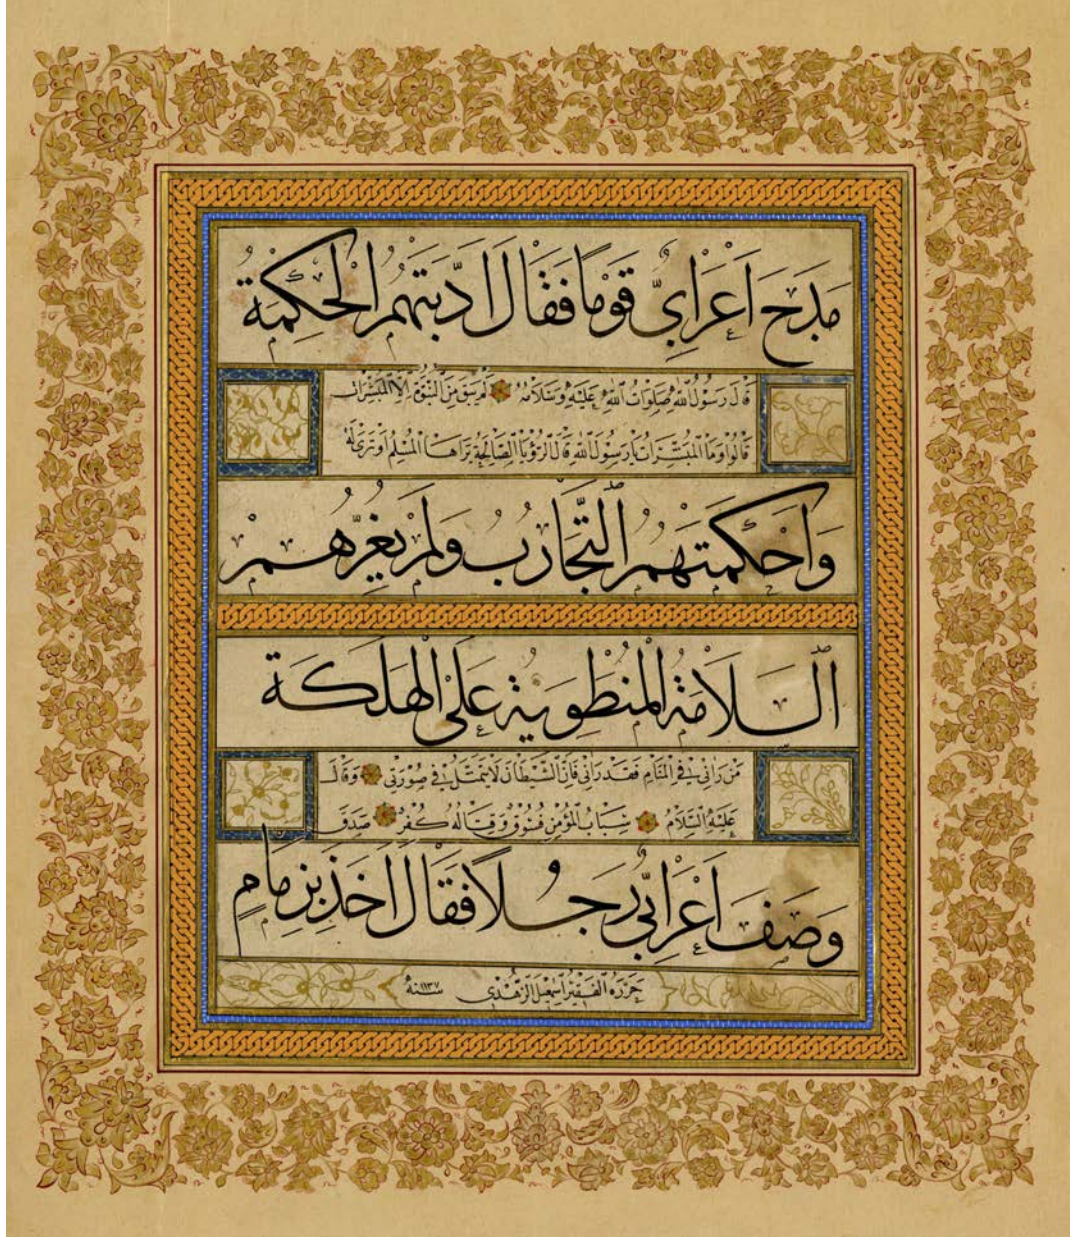 مَدَحَ اَعْرَابِيٌّ قَوْمًا فَقَالَ اَدَّبَتْهُمُ الْحِكْمَةُ
قَالَ رَسُولُ اللّٰهِ صَلَوَاتُ اللّٰهِ عَلَيْهِ وَسَلَامُهُ لَمْ يَبْقَ مِنَ النُّبُوَّةِ اِلَّا الْمُبَشِّرَاتُ
قَالُوا وَمَا الْمُبَشِّرَاتُ يَا رَسُولَ اللّٰهِ قَالَ الرُّؤْيَا الصَّالِحَةُ يَرَاهَا الْمُسْلِمُ اَوْ تُرٰى لَهُ
وَاَحْكَمَتْهُمُ التَّجَارِبُ وَلَمْ يَغُرَّهُمْ
اَلسَّلَامَةُ الْمُنْطَوِيَةُ عَلَى الْهَلَكَةِ
مَنْ رَاٰنِي فِي الْمَنَامِ فَقَدْ رَاٰنِي فَاِنَّ الشَّيْطَانَ لَا يَتَمَثَّلُ فِي صُورَتِي وَقَالَ
عَلَيْهِ السَّلَامُ سِبَابُ الْمُؤْمِنِ فُسُوقٌ وَقِتَالُهُ كُفْرٌ صَدَقَ
وَصَفَ اَعْرَابِيٌّ رَجُلًا فَقَالَ اَخَذَ بِزِمَامِ
حَرَّرَهُ الْفَقِيرُ اِسْمٰعِيلُ الزُّهْدِي سنة ١١٣٧